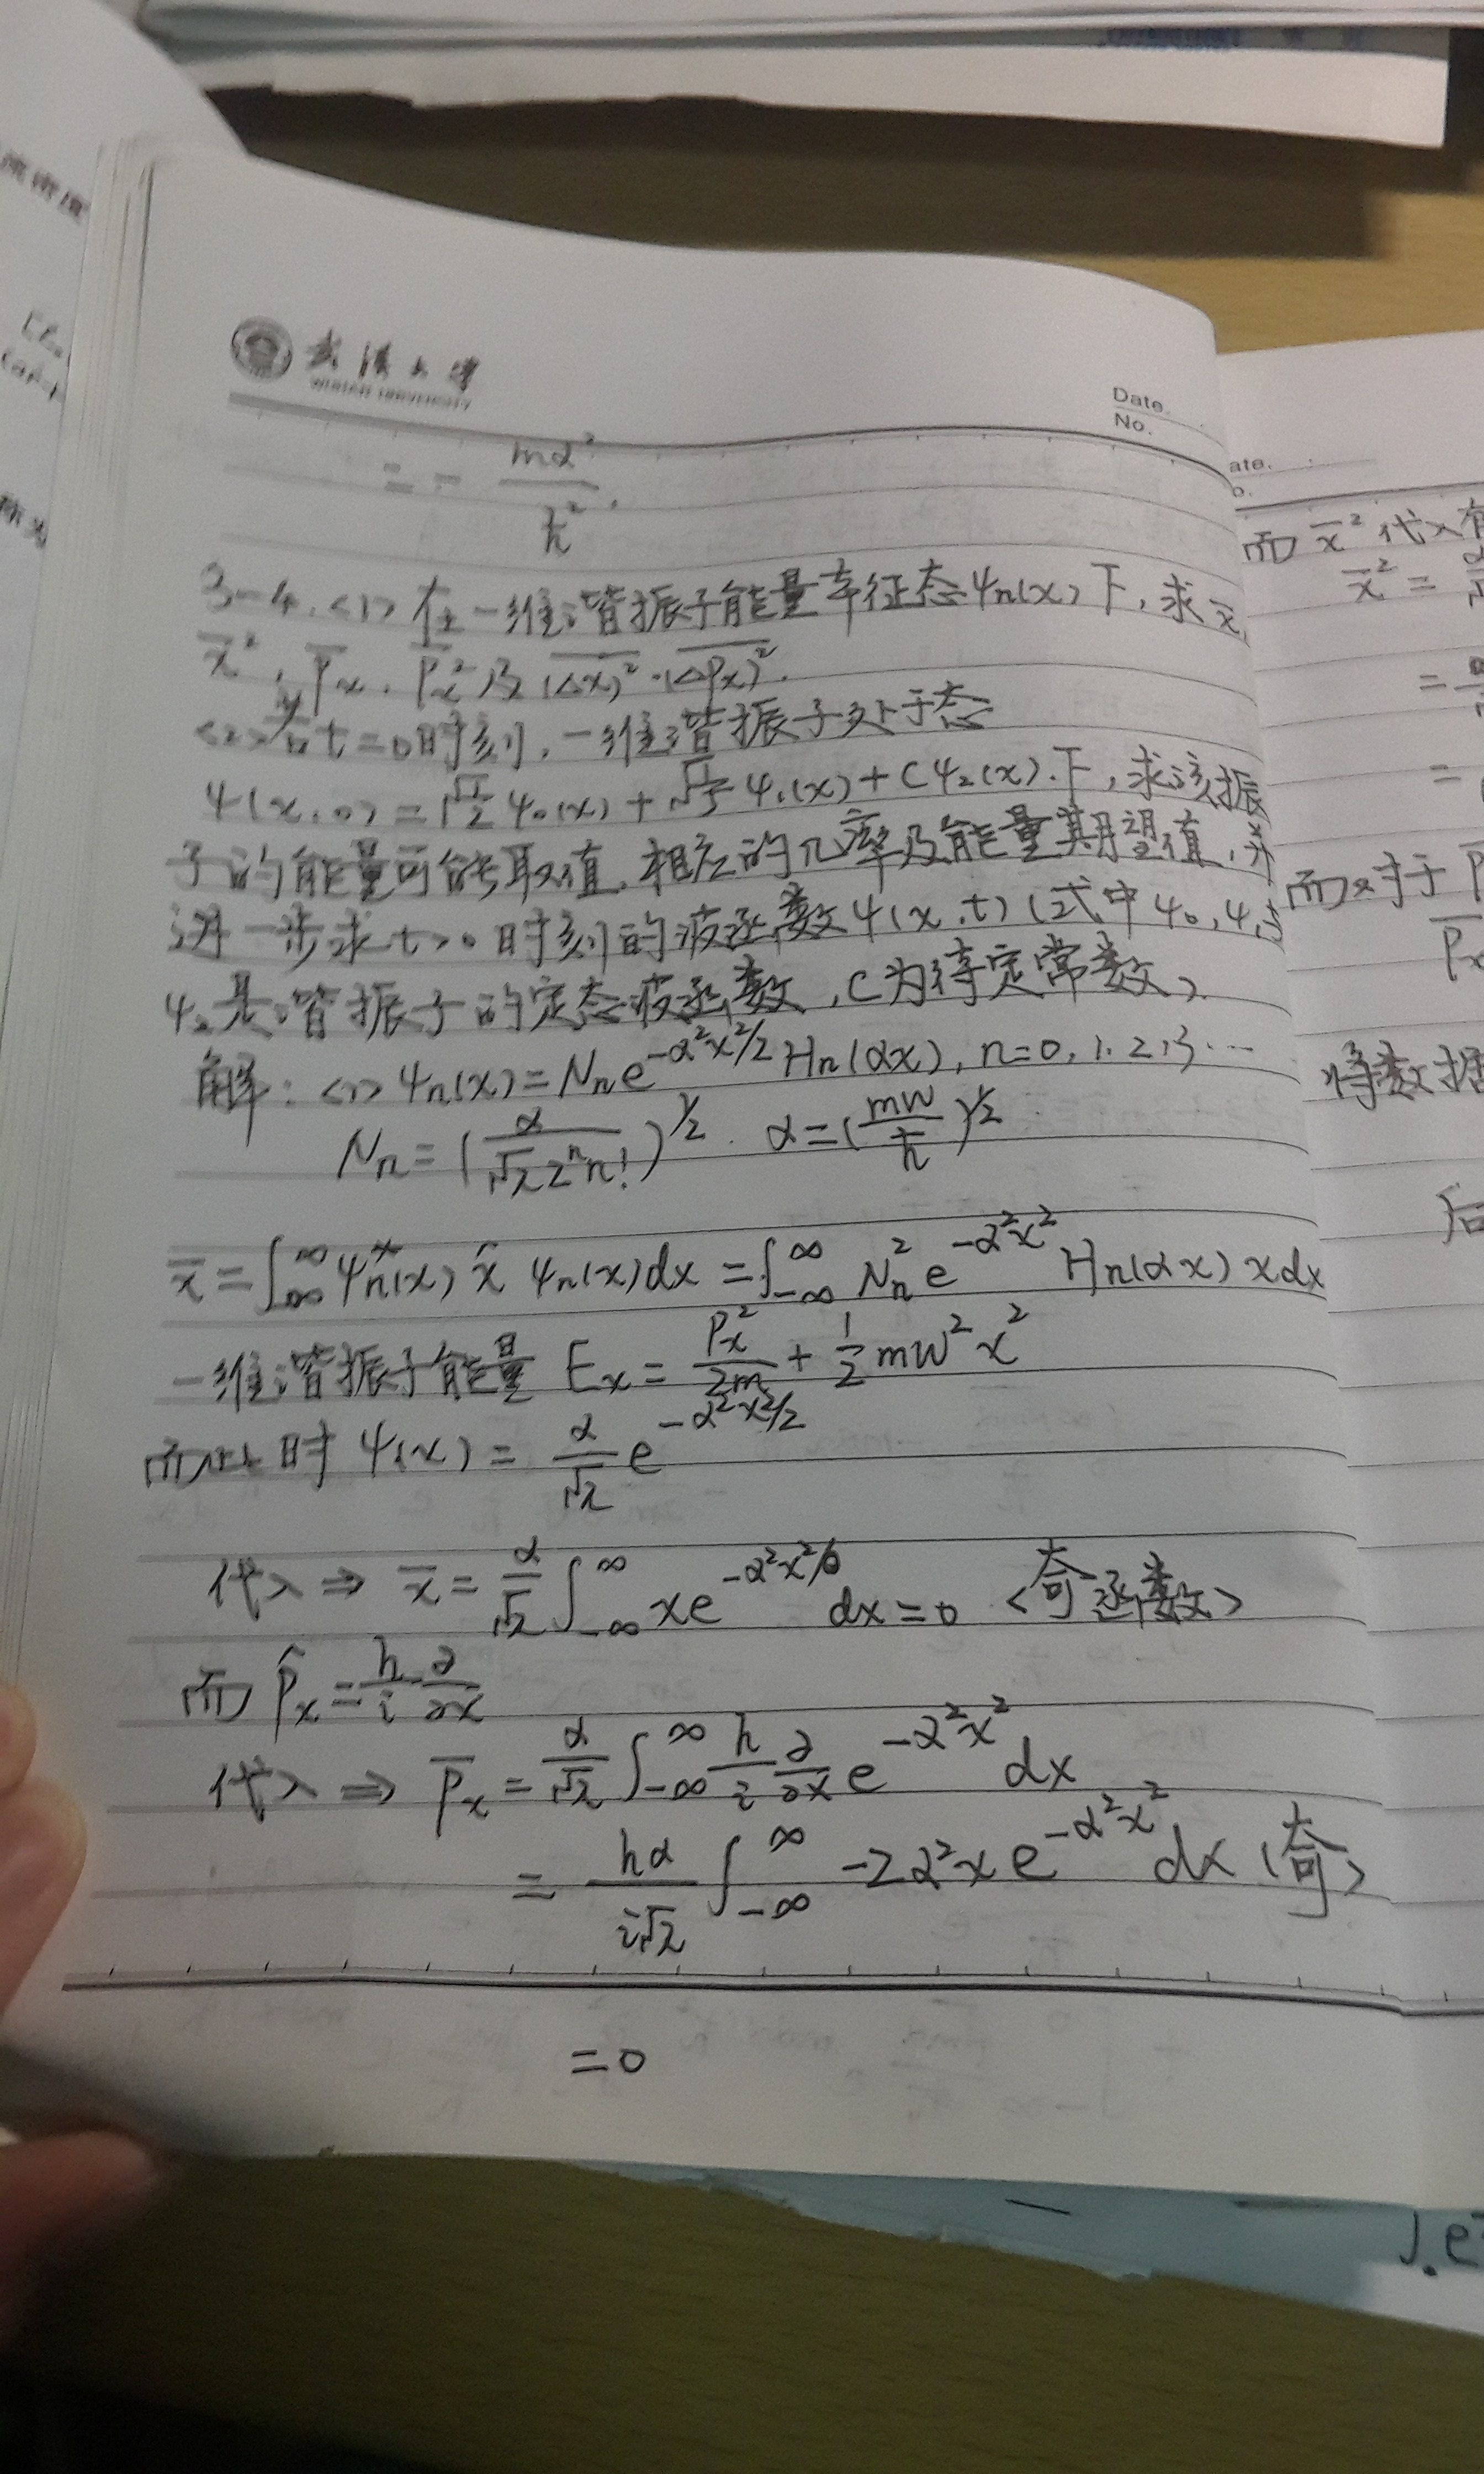 武汉大学
WUHAN UNIVERSITY
Date.
No.
= - mα²/ħ².
3-4.<1> 在一维谐振子能量本征态ψn(x)下,求x̄,
x̄²,p̄x,p̄x²及(Δx)²·(Δpx)².
<2>在t=0时刻,一维谐振子处于态
ψ(x,0)=√(1/2)ψ₀(x)+√(1/5)ψ₁(x)+Cψ₂(x).下,求该振
子的能量可能取值,相应的几率及能量期望值,并
进一步求t>0时刻的波函数ψ(x,t)(式中ψ₀,ψ₁,
ψ₂是谐振子的定态波函数,C为待定常数).
解:<1>ψn(x)=Nne^(-α²x²/2)Hn(αx),n=0,1,2,3…
Nn=(α/(√π2ⁿn!))^(1/2). α=(mw/ħ)^(1/2)
x̄=∫_∞^∞ψn*(x)x̂ψn(x)dx=∫_-∞^∞Nn²e^(-α²x²)Hn(αx)xdx
一维谐振子能量 Ex=Px²/2m+1/2mw²x²
而此时ψ(x)=α/√π e^(-α²x²/2)
代入⇒x̄=α/√π∫_-∞^∞xe^(-α²x²)dx=0 <奇函数>
而p̂x=ħ/i ∂/∂x
代入⇒p̄x=α/√π∫_-∞^∞ħ/i ∂/∂x e^(-α²x²)dx
=ħα/(i√π)∫_-∞^∞-2α²xe^(-α²x²)dx(奇)
=0
ate.
o.
而x̄²代入有
x̄²=
=
=
而对于
将数据
后